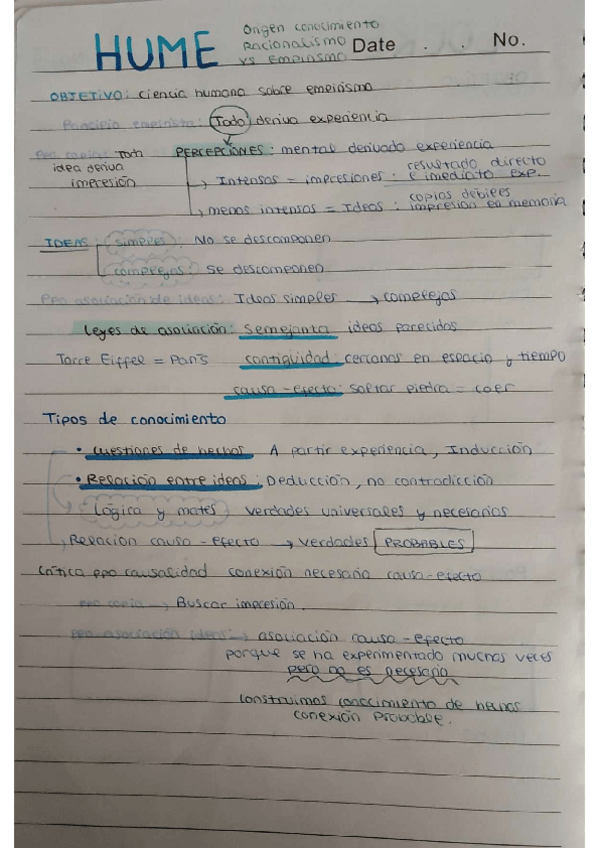 HUME
Origen conocimiento
Racionalismo
vs Empirismo
Date . . No.
OBJETIVO: ciencia humana sobre empirismo
Principio empirista: Todo deriva experiencia
Ppo copia: Toda
idea deriva
impresión
PERCEPCIONES: mental derivado experiencia
→ Intensas = impresiones: resultado directo
e imediato exp.
→ menos intensas = Ideas: copias débiles
impresión en memoria
IDEAS: simples: No se descomponen
complejas: Se descomponen
Ppo asociación de ideas: Ideas simples → complejas
Leyes de asociación: Semejanza ideas parecidas
Torre Eiffel = París contigüidad: cercanas en espacio y tiempo
causa-efecto: soltar piedra = caer
Tipos de conocimiento
• Cuestiones de hechos A partir experiencia, Inducción
• Relación entre ideas: Deducción, no contradicción
Lógica y mates verdades universales y necesarias
→ Relación causa-efecto → verdades PROBABLES
Crítica ppo causalidad conexión necesaria causa-efecto
ppo copia → Buscar impresión.
ppo asociación ideas → asociación causa-efecto
porque se ha experimentado muchas veces
pero no es necesaria
Construimos conocimiento de hechos
conexión probable.